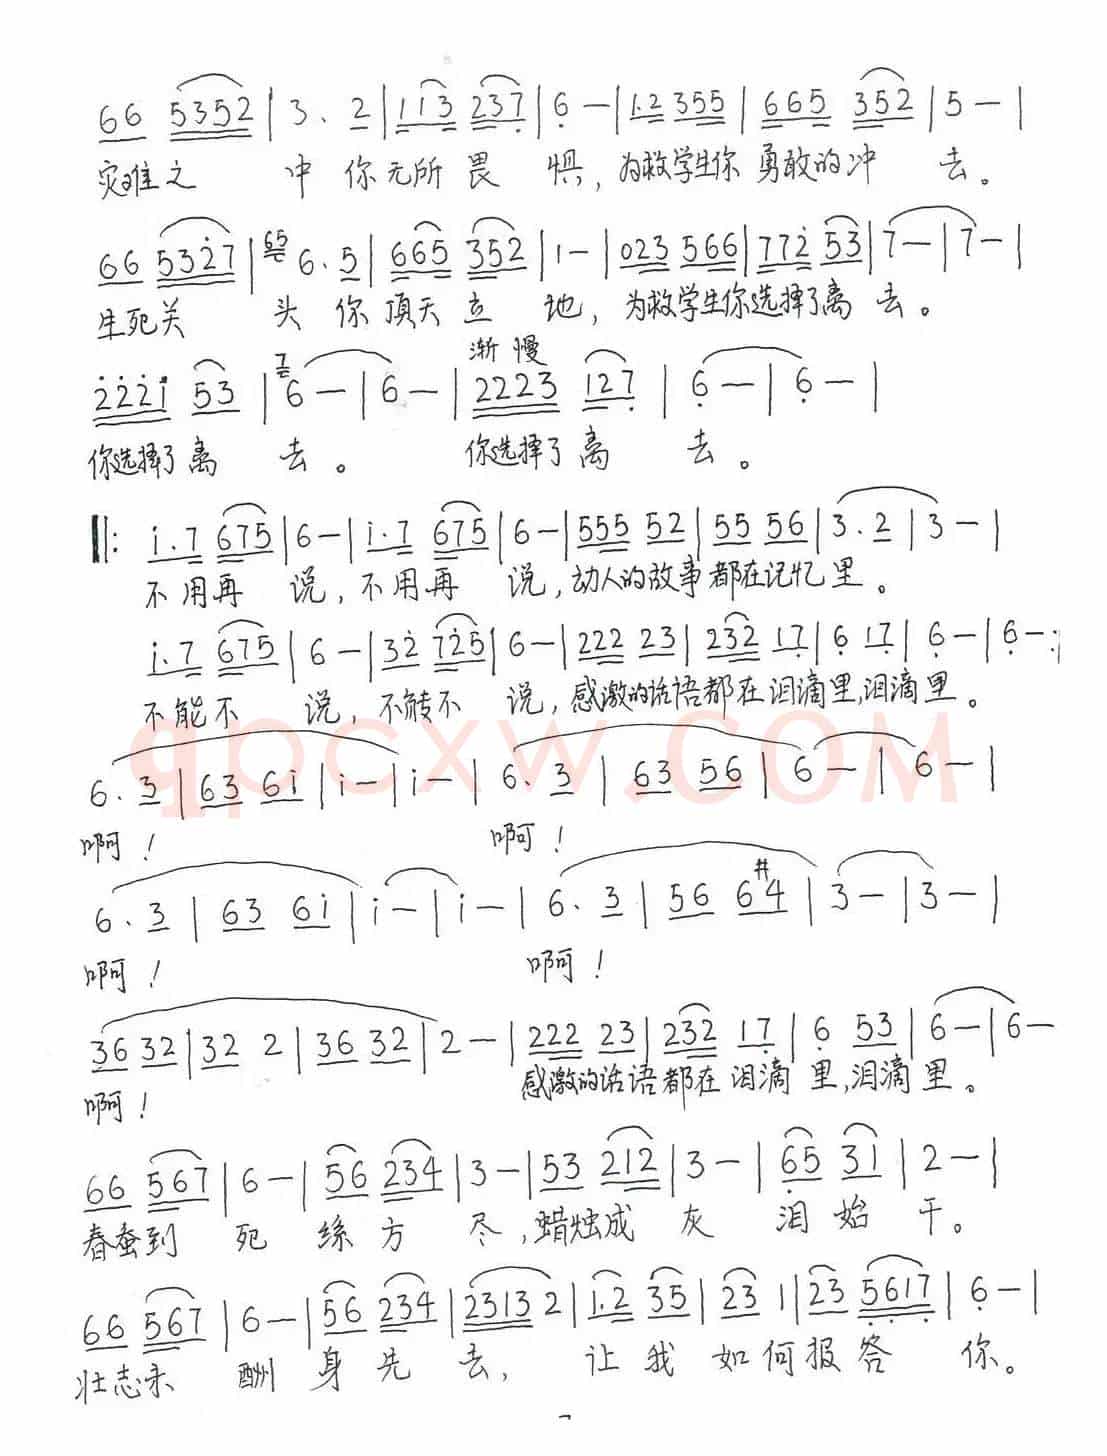 66 5352 | 3. 2 | 113 237 | 6 — | 1.2 355 | 665 352 | 5 — |
灾难之 中 你无所畏 惧，为救学生你 勇敢的冲 去。
66 5327 | 65 6.5 | 665 352 | 1— | 023 566 | 772 53 | 7— | 7— |
生死关 头 你 顶天 立 地，为救学生你选择了离 去。
渐慢
2221 53 | 7 6 — | 6 — | 2223 127 | 6 — | 6 — |
你选择了离 去。 你选择了离 去。
‖: i.7 675 | 6— | i.7 675 | 6— | 555 52 | 55 56 | 3.2 | 3 — |
不用再 说，不用再 说，动人的故事都在记忆里。
i.7 675 | 6 — | 32 725 | 6— | 222 23 | 232 17 | 6 17 | 6 — | 6 — :|
不能不 说，不能不 说，感激的话语都在泪滴里，泪滴里。
6.3 | 63 6i | i — | i — | 6.3 | 63 56 | 6 — | 6 — |
啊！ 啊！
6.3 | 63 6i | i — | i — | 6.3 | 56 6#4 | 3 — | 3 — |
啊！ 啊！
36 32 | 32 2 | 36 32 | 2 — | 222 23 | 232 17 | 6 53 | 6 — | 6 —
啊！ 感激的话语都在泪滴里，泪滴里。
66 567 | 6 — | 56 234 | 3 — | 53 212 | 3 — | 65 31 | 2 — |
春蚕到 死 丝方 尽，蜡烛成 灰 泪始 干。
66 567 | 6 — | 56 234 | 2313 2 | 1.2 35 | 23 1 | 23 5617 | 6 — |
壮志未 酬 身先 去，让我 如何报答 你。
qpcxw.COM